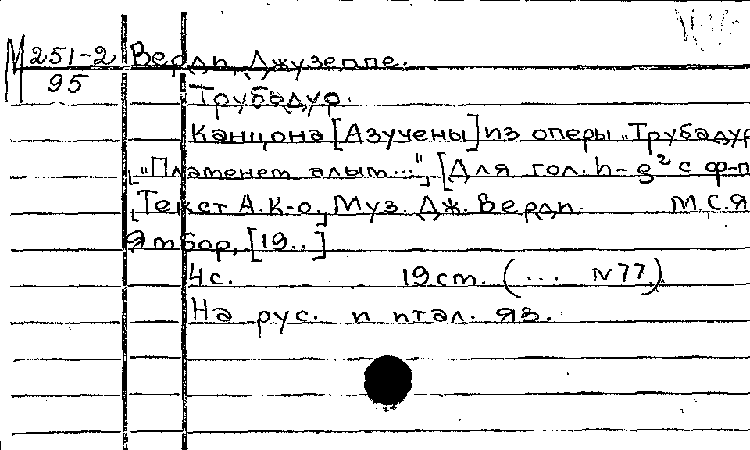 М 251-2 Верди, Джузеппе.
95
Трубадур.
Канцона [Азучены] из оперы „Трубадур
[„Пламенем алым...“], [Для гол. h-g² с ф-п
[Текст А.К-о], Муз. Дж. Верди. М.С.Я
Ямбор, [19..]
4с. 19см. (... N77.)
На рус. и итал. яз.